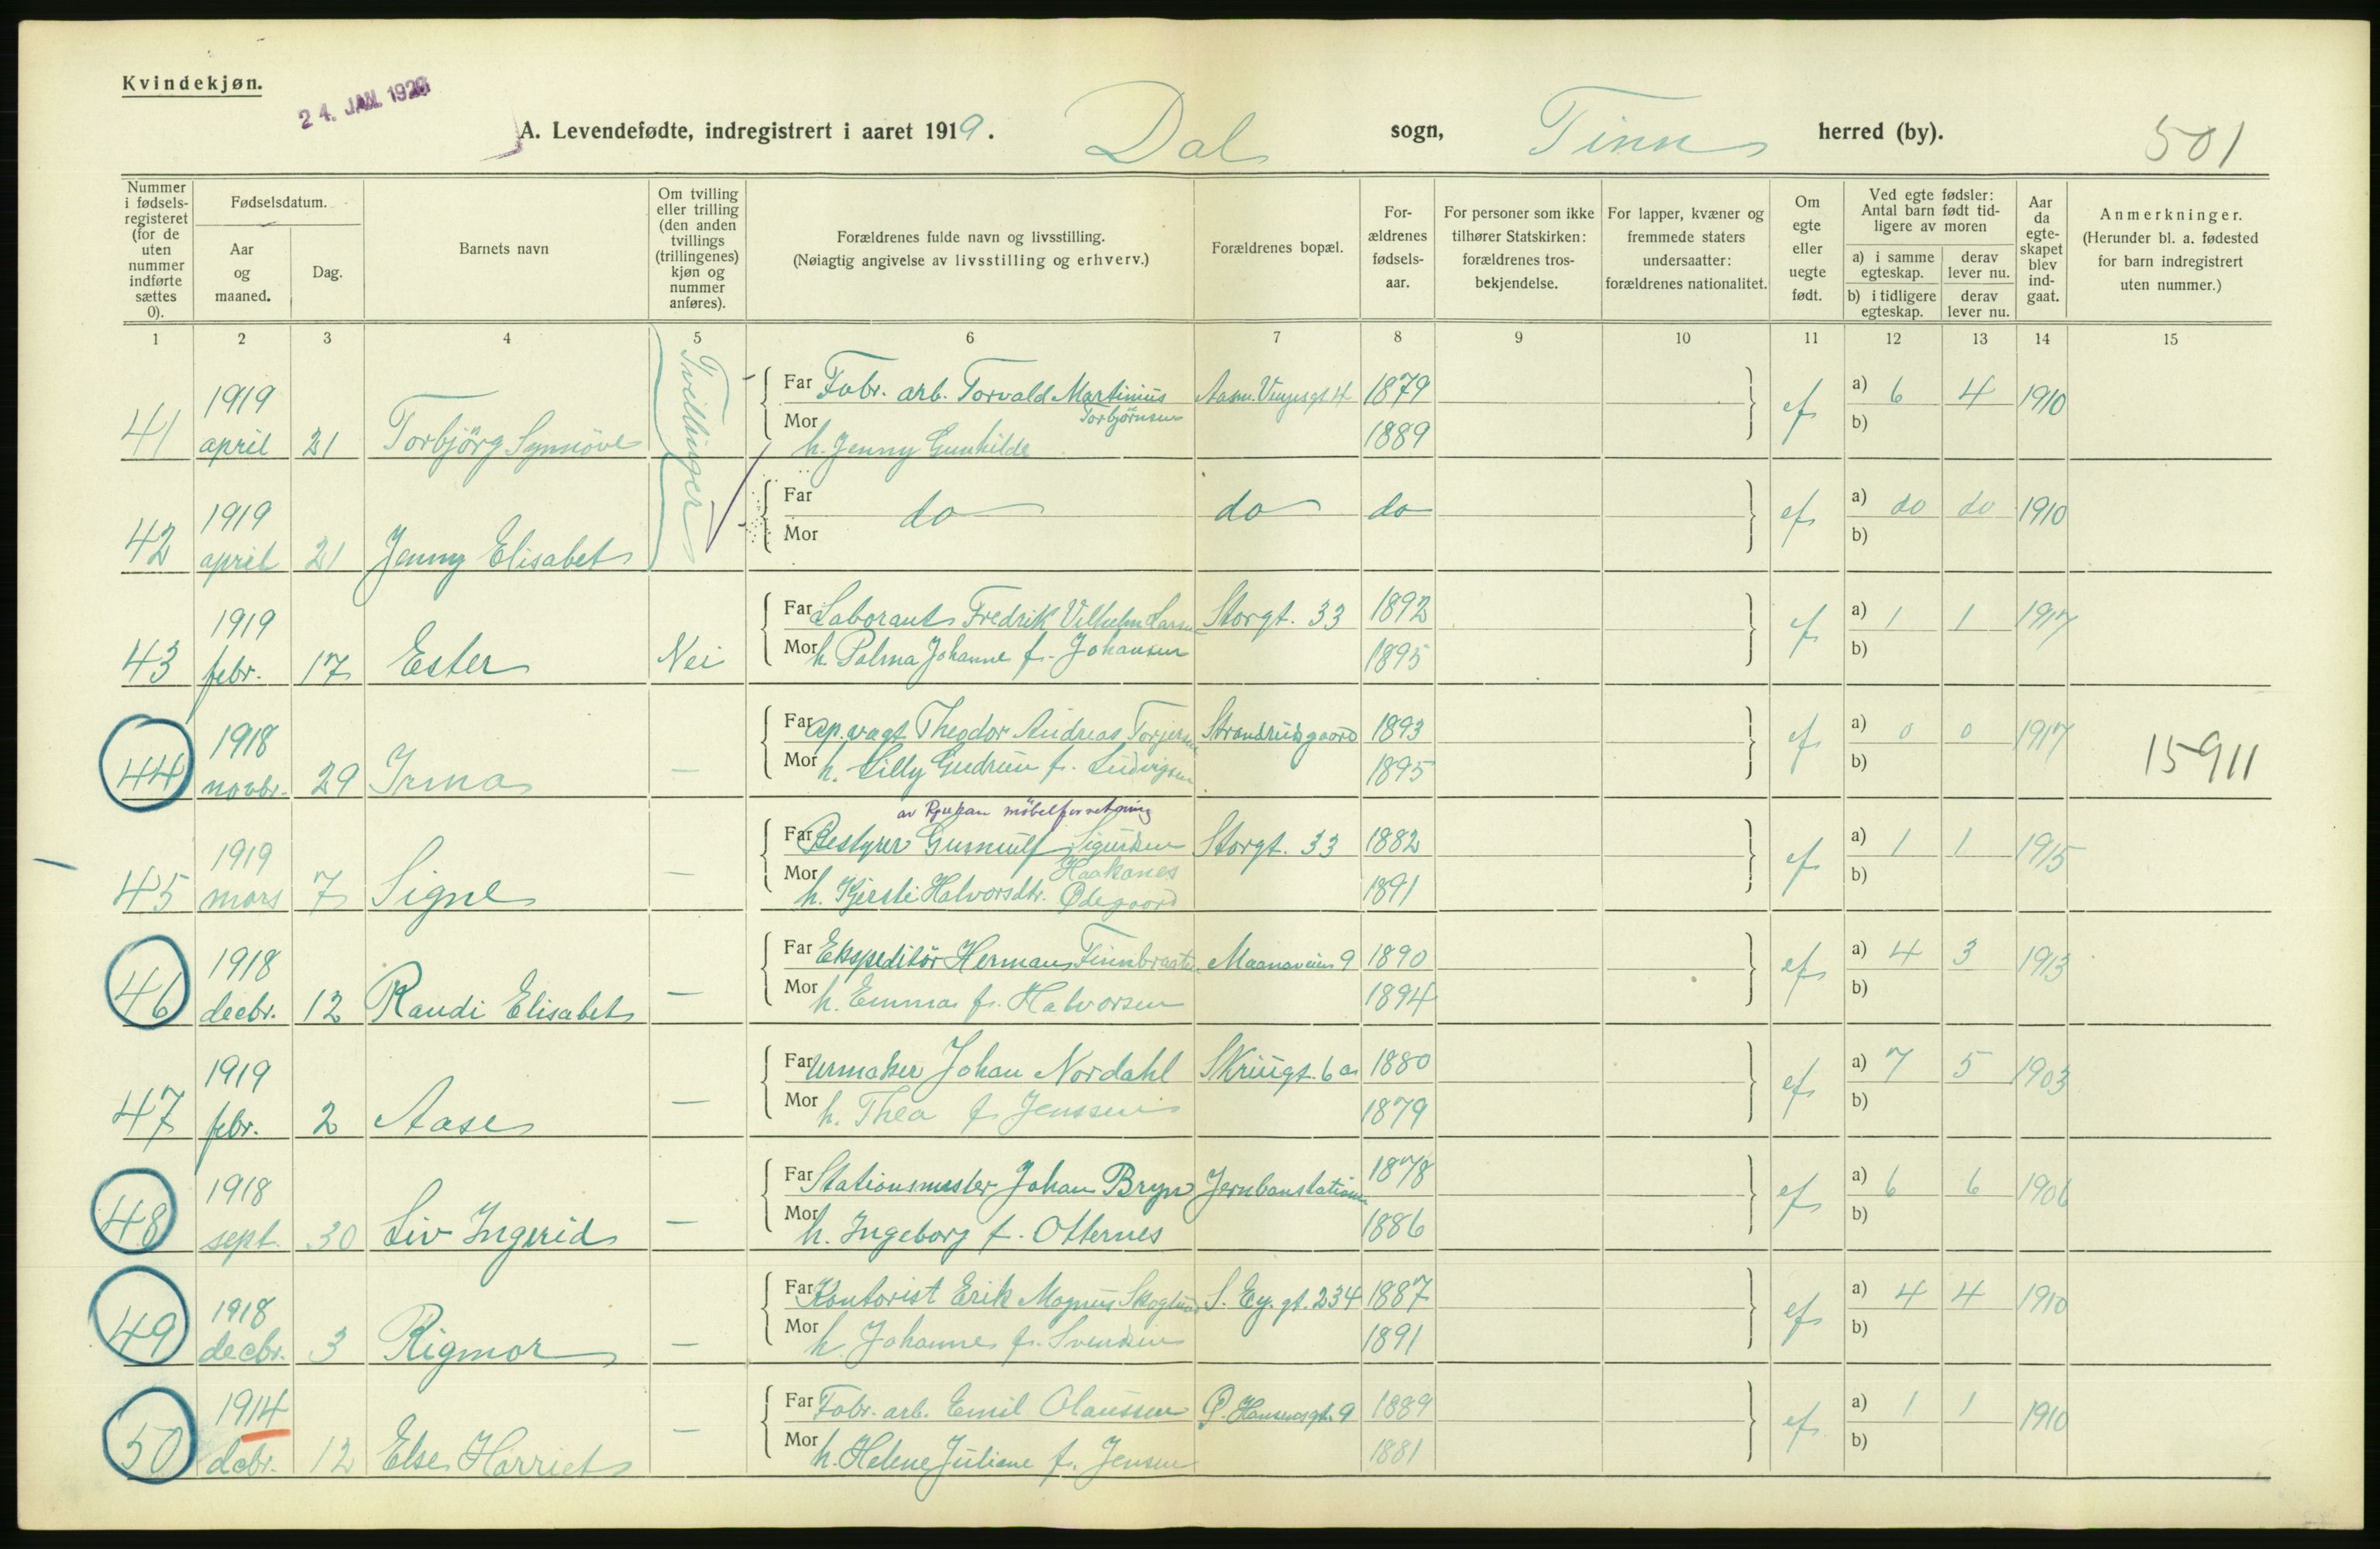 Kvindekjøn.
24. JAN. 1920
A. Levendefødte, indregistrert i aaret 1919. Dal sogn, Tinn herred (by). 501
Nummer i fødselsregisteret (for de uten nummer indførte sættes 0).
Fødselsdatum.
Aar og maaned.
Dag.
Barnets navn
Om tvilling eller trilling (den anden tvillings (trillingenes) kjøn og nummer anføres).
Forældrenes fulde navn og livsstilling.
(Nøiagtig angivelse av livsstilling og erhverv.)
Forældrenes bopæl.
Forældrenes fødselsaar.
For personer som ikke tilhører Statskirken: forældrenes trosbekjendelse.
For lapper, kvæner og fremmede staters undersaatter: forældrenes nationalitet.
Om egte eller uegte født.
Ved egte fødsler: Antal barn født tidligere av moren
a) i samme egteskap. derav lever nu.
b) i tidligere egteskap. derav lever nu.
Aar da egteskapet blev indgaat.
Anmerkninger.
(Herunder bl. a. fødested for barn indregistrert uten nummer.)
1 2 3 4 5 6 7 8 9 10 11 12 13 14 15
Tvillinger
41 1919 april 21 Torbjörg Synnöve
Far Fabr. arb. Torvald Martinius Torbjörnsen Aasm. Vinjesgt 4 1879 ef a) 6 4 1910
Mor h. Jenny Gunhilde 1889 b)
42 1919 april 21 Jenny Elisabet
Far do do do ef a) do do 1910
Mor b)
43 1919 febr. 17 Ester Nei
Far Laborant Fredrik Vilhelm Larsen Storgt. 33 1892 ef a) 1 1 1917
Mor h. Palma Johanne f. Johansen 1895 b)
44 1918 novbr. 29 Irma —
Far Ap. vagt Theodor Andreas Torjersen Strandrudgaard 1893 ef a) 0 0 1917 15911
Mor h. Lilly Gudrun f. Ludvigsen 1895 b)
av Rjukan möbelforretning
45 1919 mars 7 Signe —
Far Bestyrer Gunnulf Sigurdsen Haakanes Storgt. 33 1882 ef a) 1 1 1915
Mor h. Kjersti Halvorsdtr. Ødegaard 1891 b)
46 1918 decbr. 12 Randi Elisabet —
Far Ekspeditör Herman Finnbraaten Maanaveien 9 1890 ef a) 4 3 1913
Mor h. Emma f. Halvorsen 1894 b)
47 1919 febr. 2 Aase —
Far Urmaker Johan Nordahl Skriugt. 6 a 1880 ef a) 7 5 1903
Mor h. Thea f. Jenssen 1879 b)
48 1918 sept. 30 Liv Ingerid —
Far Stationsmester Johan Bryn Jernbanstationen 1878 ef a) 6 6 1906
Mor h. Ingeborg f. Otternes 1886 b)
49 1918 decbr. 3 Rigmor —
Far Kontorist Erik Magnus Skoglund S. Ey. gt. 234 1887 ef a) 4 4 1910
Mor h. Johanne f. Svendsen 1891 b)
50 1914 debr. 12 Else Harriet —
Far Fabr. arb. Emil Olaussen P. Hansensgt. 9 1889 ef a) 1 1 1910
Mor h. Helene Juliane f. Jensen 1881 b)